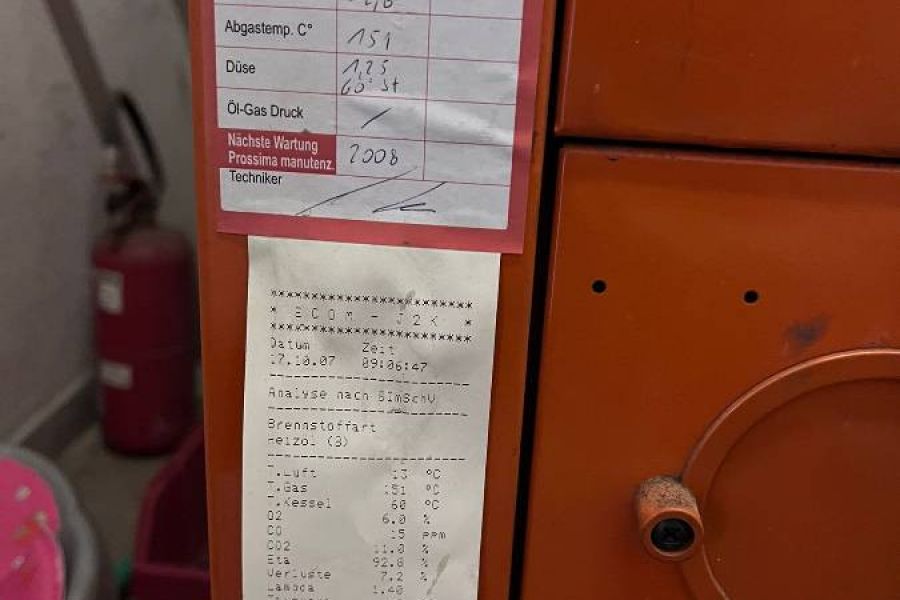 Abgastemp. C° 151
Düse 1,25
60° St
Öl-Gas Druck /
Nächste Wartung
Prossima manutenz. 2008
Techniker
************************
* ECOM - J2K *
************************
Datum Zeit
17.10.07 09:06:47
------------------------
Analyse nach BImSchV
------------------------
Brennstoffart
Heizöl (3)
------------------------
T.Luft 13 °C
T.Gas 151 °C
T.Kessel 60 °C
O2 6.0 %
CO 15 ppm
CO2 11.0 %
Eta 92.8 %
Verluste 7.2 %
Lambda 1.40